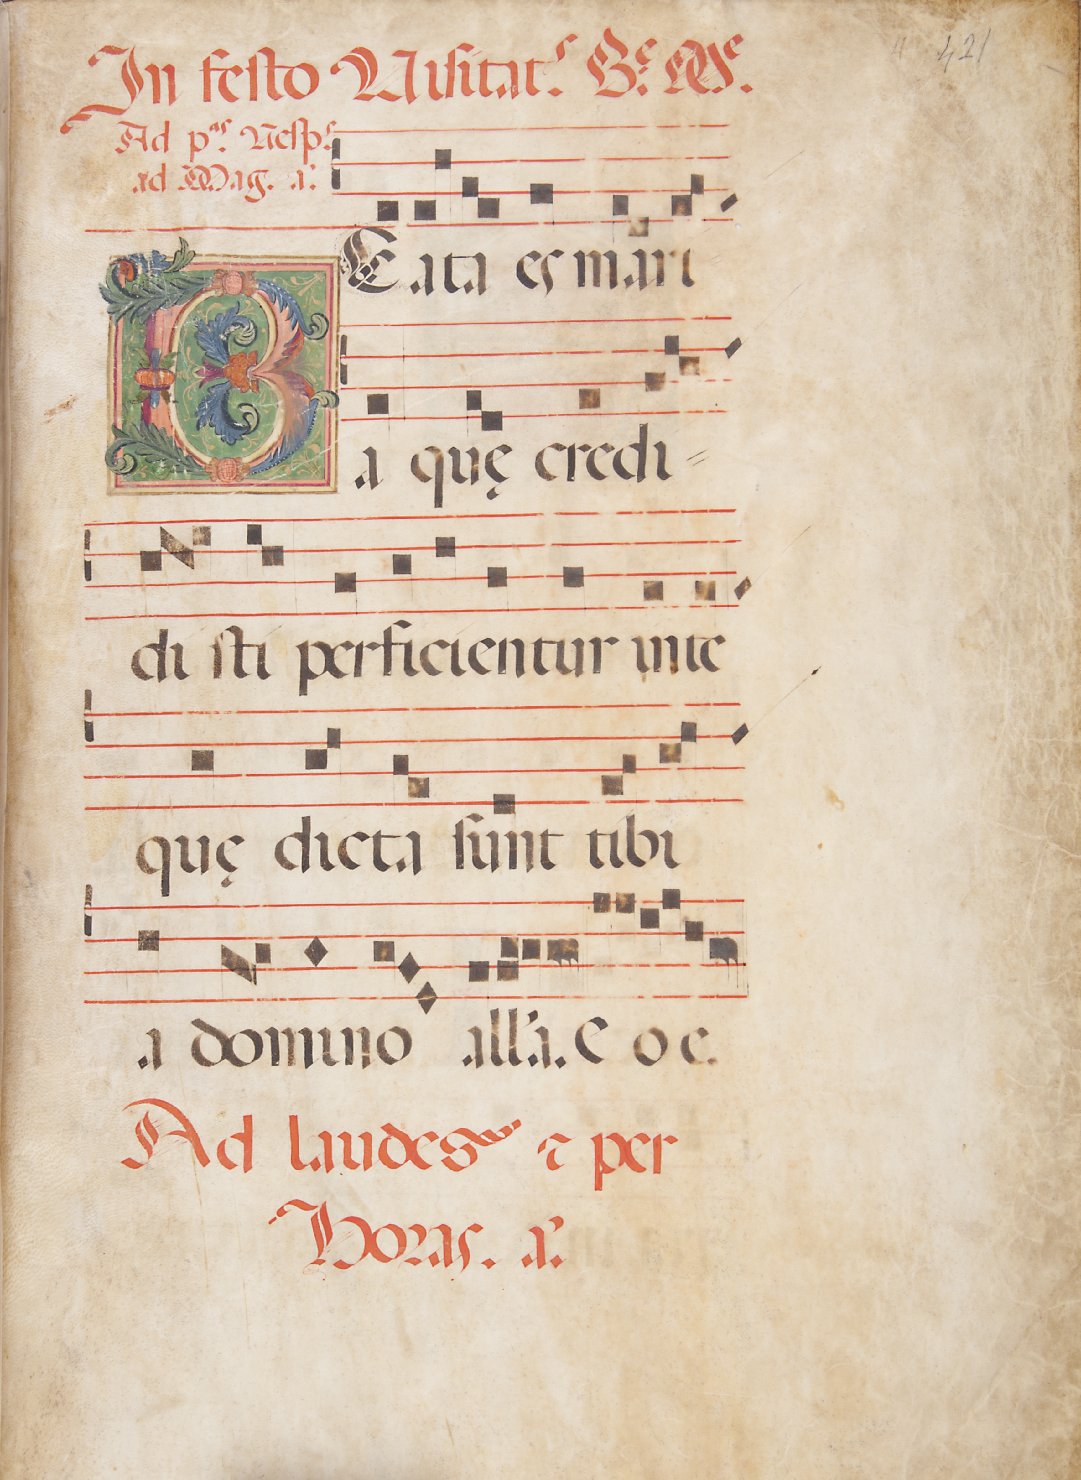 421
In festo Visitat.ˢ B.ᵉ Mᵉ.
Ad p.ᵃˢ Vesp.ˢ
ad Mag. a.
BEata es mari
a quę credi=
di sti perficientur inte
quę dicta sunt tibi
a domino all'a. E o e.
Ad laudes ⁊ per
Horas. a.